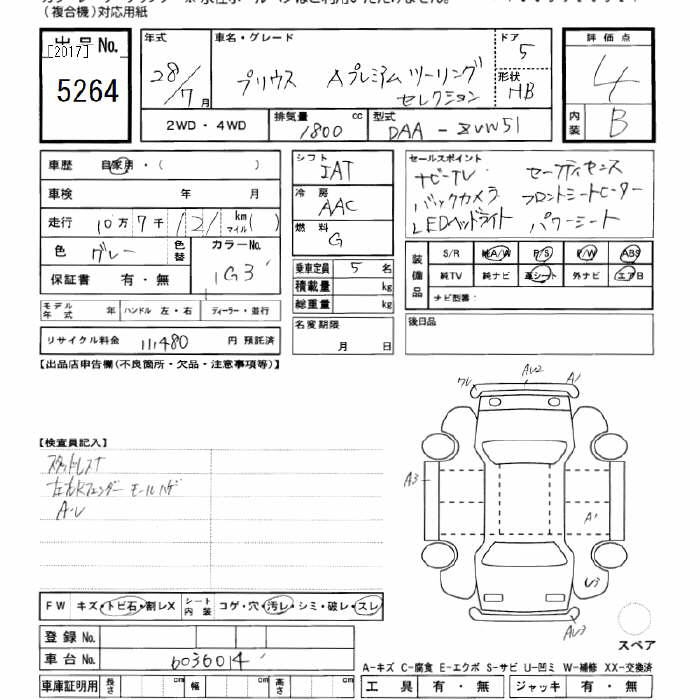 (複合機)対応用紙
出品No.
[2017]
5264
年式
28/7月
車名・グレード
プリウス Aプレミアム ツーリング
セレクション
ドア
5
形状
HB
評価点
4
内装
B
2WD・4WD
排気量
1800
cc
型式
DAA-ZVW51
車歴 自家用・( )
車検 年 月
走行 10万7千121 km マイル( )
色 グレー 色替 カラーNo. 1G3
保証書 有・無
モデル年式 年 ハンドル 左・右 ディーラー・並行
リサイクル料金 11,480 円 預託済
シフト
IAT
冷房
AAC
燃料
G
乗車定員 5 名
積載量 kg
総重量 kg
名変期限
月 日
セールスポイント
ナビ・TV セーフティセンス
バックカメラ フロントシートヒーター
LEDヘッドライト パワーシート
装備品
S/R 純A/W P/S P/W ABS
純TV 純ナビ 革シート 外ナビ エアB
ナビ型番:
後日品
【出品店申告欄(不良箇所・欠品・注意事項等)】
【検査員記入】
スタッドレス
左右Rフェンダー モールハゲ
A・U
AU2
A1
A3
A1
U3
AU3
FW キズ・トビ石・割レX シート内装 コゲ・穴・汚レ・シミ・破レ・スレ
登録No.
車台No. 6036014
車庫証明用 長さ cm 幅 cm 高さ cm
スペア
A-キズ C-腐食 E-エクボ S-サビ U-凹ミ W-補修 XX-交換済
工具 有・無 ジャッキ 有・無